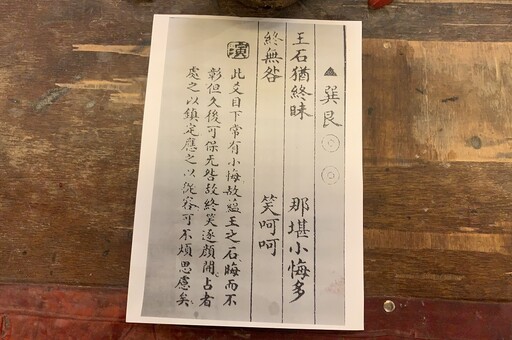 ▲ 巽艮 ◎ ◎
王石猶終昧 那堪小悔多
終無咎 笑呵呵
演 此爻目下常有小悔故蘊王之石晦而不
彰但久後可保无咎故終笑逐顏開占者
處之以鎮定應之以從容可不煩思慮矣